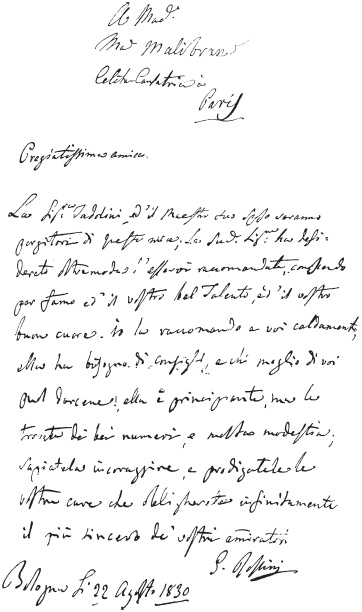 A Mad.e
Ma. Malibran
Celebre Cantatrice à
Paris
Pregiatissima amica.
La Sig.ra Taddini, ed il Maestro suo sposo saranno
porgitori di questa mia; la Sud.a Sig.ra ha desi-
derato oltremodo l'esservi raccomandata, conoscendo
per fama ed il vostro bel Talento, ed il vostro
buon cuore. io la raccomando a voi caldamente,
ella ha bisogno di consigli, e chi meglio di voi
può darcene! ella è principiante, ma ha
tronte dei bei numeri, e molta modestia;
sapiatela incoraggire, e prodigatele le
vostre cure che obligherete infinitamente
il più sincero de' vostri amiratori
G. Rossini
Bologna Li 22 Agosto 1830